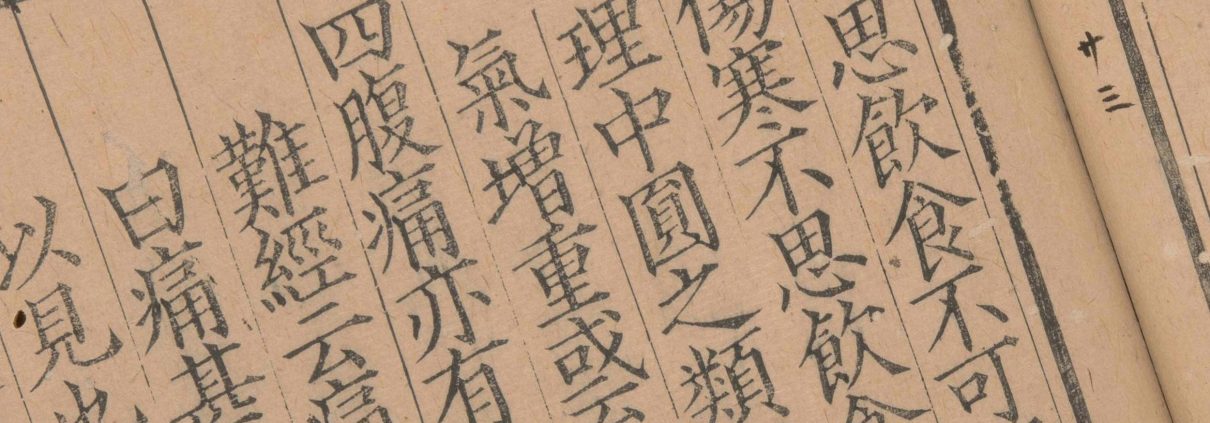 廿三
思飲食不可
傷寒不思飲食
理中圓之類
氣增重或云
四腹痛亦有
難經云痛
曰痛甚
以見也